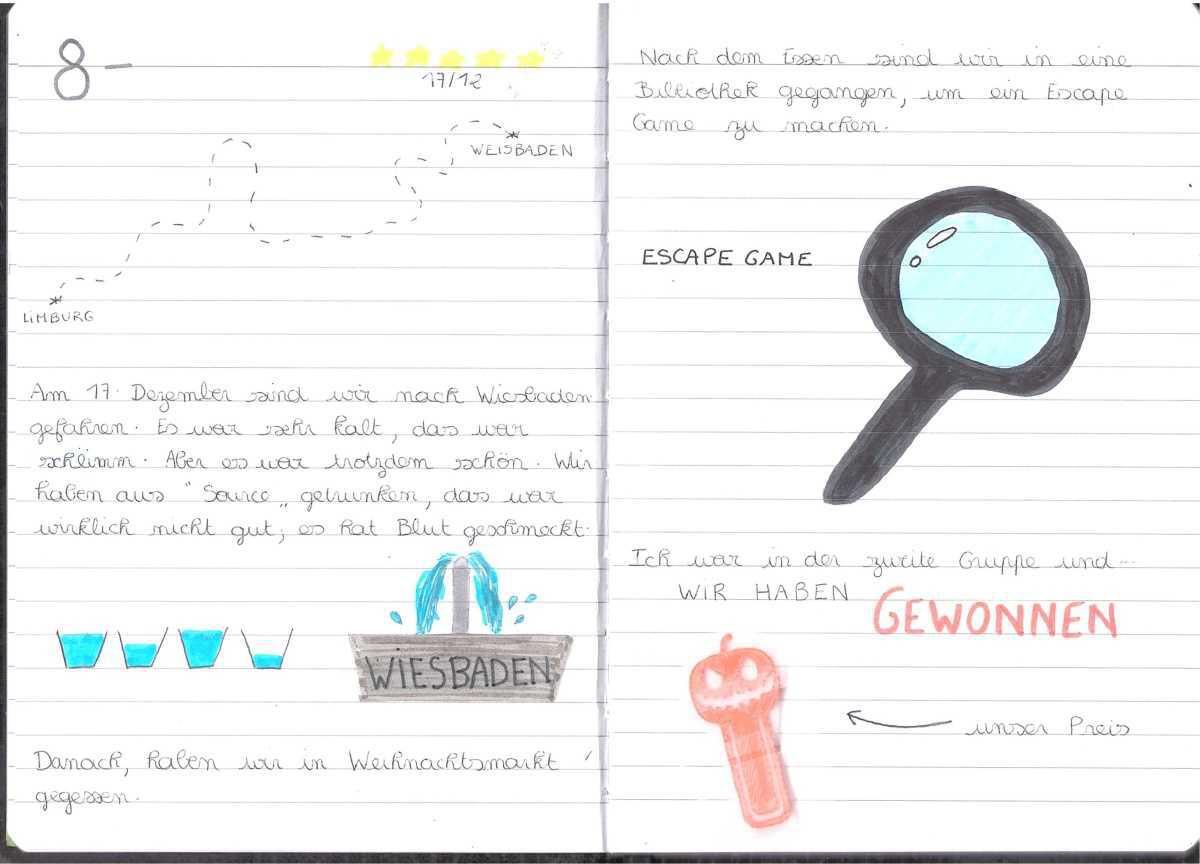 8-
17/12
WEISBADEN
LIMBURG
Am 17. Dezember sind wir nach Wiesbaden
gefahren. Es war sehr kalt, das war
schlimm. Aber es war trotzdem schön. Wir
haben aus "Source„ getrunken, das war
wirklich nicht gut, es hat Blut geschmeckt.
WIESBADEN
Danach, haben wir in Weihnachtsmarkt
gegessen.
Nach dem Essen sind wir in eine
Bibliothek gegangen, um ein Escape
Game zu machen.
ESCAPE GAME
Ich war in der zweite Gruppe und...
WIR HABEN GEWONNEN
unser Preis